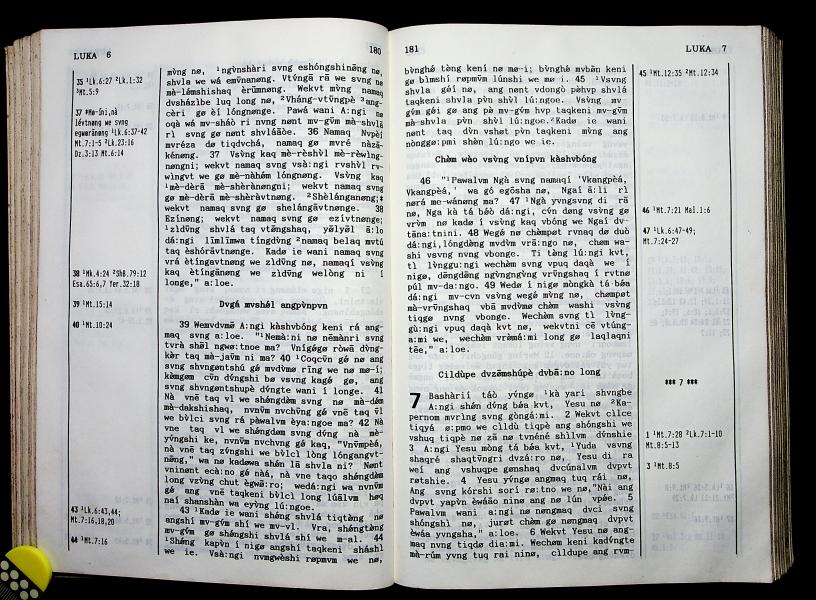 LUKA 6
180
35 ¹Lk.6:27 ²Lk.1:32
³Mt.5:9
37 *Mø-íni,nà
lévtnøng we svng
egwørānøng ¹Lk.6:37-42
Mt.7:1-5 ²Lk.23:16
Dz.3:13 Mt.6:14
38 ¹Mk.4:24 ²ShB.79:12
Esa.65:6,7 Yer.32:18
39 ¹Mt.15:14
40 ¹Mt.10:24
43 ¹Lk.6:43,44;
Mt.7:16,18,20
44 ¹Mt.7:16
mv̀ng nø, ¹ngv̀nshàri svng eshóngshìnēng nø,
shvla we wá emv̄nanøng. Vtv́ngā rā we svng nø
mà-lámshishaq èrūmnøng. Wekvt mv̀ng namaq
dvsházìbe luq long nø, ²Vháng-vtv̄ngpè ³ang-
cèri gø èí lóngnønge. Pawá wani A:ngi nø
oqà wá mv-sháò ri nvng nønt mv-gv̄m mà-shvlà
rì svng gø nønt shvláāòe. 36 Namaq Nvpèí
mvréza dø tiqdvchá, namaq gø mvré nàzà-
kénøng. 37 Vsv̀ng kaq mè-rèshv̀l mè-rèwìng-
nøngni; wekvt namaq svng vsà:ngi rvshv̀l rv-
wìngvt we gø mè-nàhám lóngnøng. Vsv̀ng kaq
¹mè-dèrā mè-shèrànøngni; wekvt namaq svng
gø mè-dèrā mè-shèràvtnøng. ²Shèlánganøng;*
wekvt namaq svng gø shelángāvtnønge. 38
Ezínøng; wekvt namaq svng gø ezívtnønge;
¹zìdv̄ng shvlá taq vtēngshaq, yǿlyǿl ā:lo
dá:ngi līmlīmwa tíngdv̀ng ²namaq belaq mvtú
taq èshórāvtnønge. Kadø ie wani namaq svng
vrá ètíngavtnøng we zìdv̄ng nø, namaqí vsv̀ng
kaq ètíngānøng we zìdv̄ng welòng ni í
longe," a:loe.
Dvgá mvshǿl angpv̀npvn
39 Wemvdvmē A:ngi kàshvbóng keni rá ang-
maq svng a:loe. "¹Nemà:ni nø nēmànri svng
tvrà shǿl ngwø:tnoe ma? Vnígéǵø ròwā dv̀ng-
kàr taq mà-jav̄m ni ma? 40 ¹Coqcv̄n gé nø ang
svng shvngøntshú gé mvdvmø rīng we nø mø-í;
kèmgøm cv̄n dv̀ngshì bø vsv̀ng kagé gø, ang
svng shvngøntshupè dv́ngte wani í longe. 41
Nà vnē taq vl we shéngdøm svng nø mà-dǿm
mà-dakshìshaq, nvnv̄m nvchv̀ng gé vnē taq v̄l
we bv̀lcì svng rá pàwalv̄m èya:ngoe ma? 42 Nà
vne taq vl we shéngdøm svng dv́ng nà mè-
yv̀ngshì ke, nvnv̄m nvchvng gé kaq, "Vnv̄mpèá,
nà vnē taq zv́ngshì we bv̀lcì lòng lóngangvt-
nēng," wa nø kadøwa shǿn lā shvla ni? Nønt
vninønt ecà:no gé nàá, nà vne taqo shéngdøm
long vzv̀ng chut ègwø:ro; wedá:ngi wa nvnv̄m
gé ang vnē taqkeni bv̀lcì long lúālv̄m høq
naí shanshàn wa èyv̀ng lú:ngoe.
43 ¹Kadø ie wani shéng shvlá tiqtèng nø
angshí mv-gv̄m shí we mv-vl. Vra, shéngtèng
mv-gv̄m gø shéngshì shvlá shí we m-al. 44
¹Shéng kapv̀n í nìgø angshí taqkeni sháshì
we ie. Vsà:ngi nvmgwèshì røpmvm we nø,
181
LUKA 7
bv̀nghé tèng keni nø mø-i; bv̀nghé mvbān keni
gø bìmshí røpmv̄m lúnshì we mø i. 45 ¹Vsv̀ng
shvla géí nø, ang nønt vdongò pèhvp shvlá
taqkeni shvla pv̀n shv̀l lú:ngoe. Vsv̀ng mv-
gv̄m géí gø ang pà mv-gv̄m hvp taqkeni mv-gv̄m
mà-shvla pv̀n shv̀l lú:ngoe.²Kadø ie wani
nønt taq dv̀n vshøt pv̀n taqkeni mv̀ng ang
nònggø:pmi shǿn lú:ngo we ie.
Chøm wào vsv̀ng vnípvn kàshvbóng
46 "¹Pawalv̄m Ngà svng namaqí 'Vkangpèá,
Vkangpèá,' wa gó egōsha nø, Ngaí ā:lì rì
nørá me-wánøng ma? 47 ¹Ngà yvngsvng di rā
nø, Nga kà tá béò dá:ngi, cv̄n døng vsv̀ng gø
vrv̀m nø kadø í vsv̀ng kaq vbóng we Ngaí dv-
tāna:tnini. 48 Wegé nø chømpøt rvnaq dø duò
dá:ngi,lóngdèng mvdv̄m vrā:ngo nø, chøm wa-
shì vsv̀ng nvng vbonge. Tì tèng lú:ngì kvt,
tì lv̀nggu:ngi wechøm svng vpuq daqà we í
nìgø, dēngdēng ngv̀ngngv̀ng vrv̄ngshaq í rvtnø
púl mv-da:ngo. 49 Wedø í nìgø mòngkà tá béá
dá:ngi mv-cvn vsv̀ng wegé mv̀ng nø, chømpøt
mà-vrv̄ngshaq vbā mvdv̀mø chøm washì vsv̀ng
tiqgø nvng vbonge. Wechøm svng tì lv̀ng-
gù:ngi vpuq daqà kvt nø, wekvtni cē vtúng-
a:mì we, wechøm vrèmá:mì long gø laqlaqní
tēe," a:loe.
Cildùpe dvzømshúpè dvbā:no long
*** 7 ***
7 Bashàrìí táò yv́ngø ¹kà yari shvngbe
A:ngi shǿn dv́ng béá kvt, Yesu nø ²Ka-
pernom mvrìng svng gòngá:mì. 2 Wekvt cìlce
tiqyá ø:pmo we cìldù tiqpè ang shóngshì we
vshuq tiqpè nø zā nø tvnéné shìlv̄m dv́nshìe
3 A:ngi Yesu mòng tá béá kvt, ¹Yuda vsv̀ng
shaqré shaqtv̄ngri dvzá:ro nø, Yesu dì ra
weí ang vshuqpe gønshaq dvcúnalv̄m dvpvt
røtshìe. 4 Yesu yv́ngø angmaq tuq rái nø,
Ang svng kórshì sori rø:tno we nø,"Nài ang
dvpvt yapv̀n èwáāo nìnø ang nø lún vpée. 5
Pawalv̄m wani a:ngì nø nøngmaq dvcì svng
shóngshì nø, jurøt chøm gø nøngmaq dvpvt
èwáa yvngsha," a:loe. 6 Wekvt Yesu nø ang-
maq nvng tiqdø dìa:mì. Wechøm keni kadv́ngte
mà-rúm yvng tuq raì nìnø, cìldupe ang rvm-
45 ¹Mt.12:35 ²Mt.12:34
46 ¹Mt.7:21 Mal.1:6
47 ¹Lk.6:47-49;
Mt.7:24-27
1 ¹Mt.7:28 ²Lk.7:1-10
Mt.8:5-13
3 ¹Mt.8:5